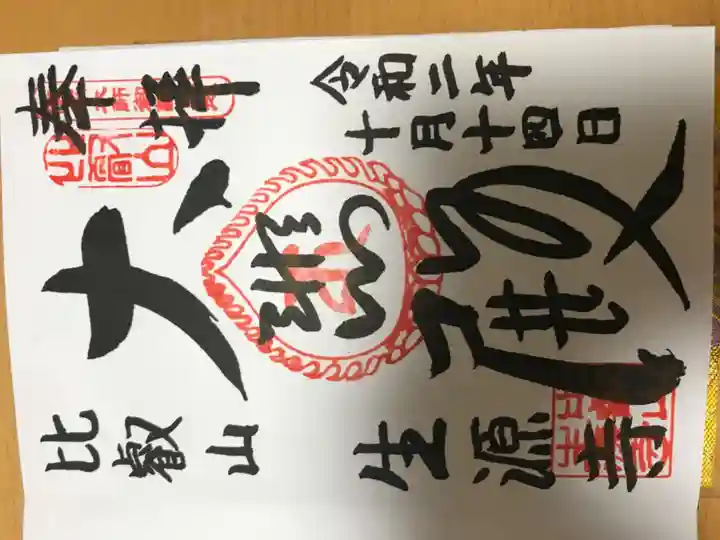 奉拝
令和二年
十月十四日
大悲殿
比叡山 生源寺